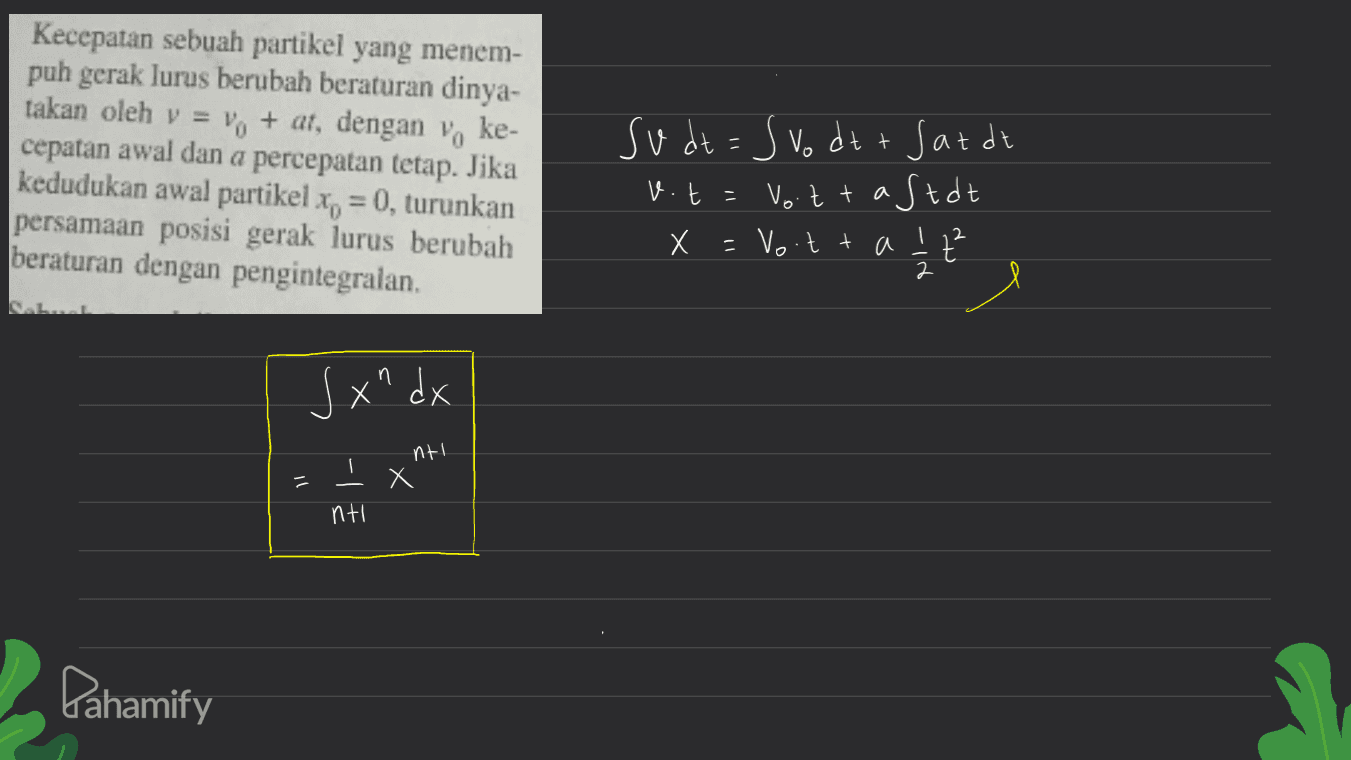 Kecepatan sebuah partikel yang menem-
puh gerak lurus berubah beraturan dinya-
takan oleh v = v₀ + at, dengan v₀ ke-
cepatan awal dan a percepatan tetap. Jika
kedudukan awal partikel x₀ = 0, turunkan
persamaan posisi gerak lurus berubah
beraturan dengan pengintegralan.
∫v dt = ∫v₀ dt + ∫at dt
v.t = v₀.t + a∫t dt
x = v₀.t + a 1/2 t²
∫xⁿ dx
= 1/(n+1) xⁿ⁺¹
Pahamify